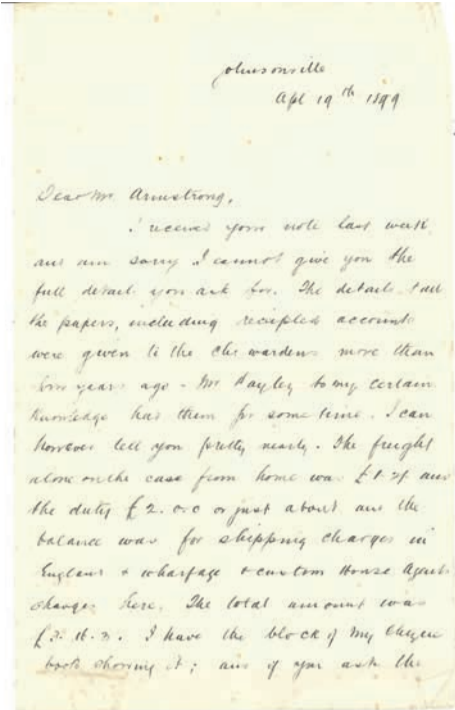 Johnsonville
Apl 19th 1899
Dear Mr. Armstrong,
I received your note last week
and am sorry I cannot give you the
full detail you ask for. The details & all
the papers, including receipted accounts
were given to the chwardens more than
years ago - Mr Hayley to my certain
knowledge had them for some time. I can
however tell you pretty nearly. The freight
alone on the case from home was and
the duty £2. or just about and the
balance was for shipping charges in
England & wharfage & custom House Agents
charges here. The total amount was
I have the block of my cheque
book showing it; and if you ask the